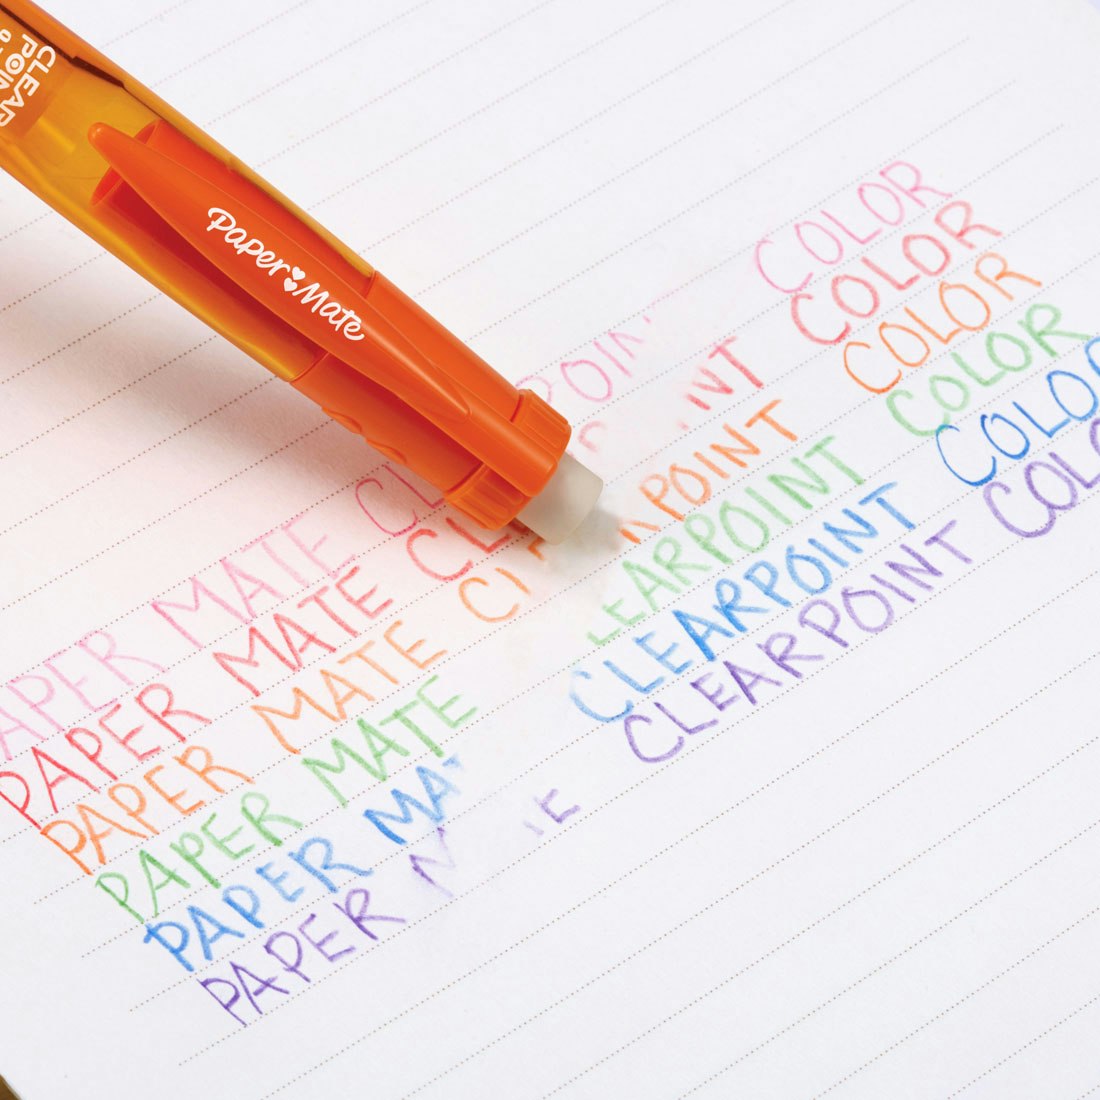 CLEAR
POIN
0.
Paper Mate
APER MATE CL POIN COLOR
PAPER MATE CL INT COLOR
PAPER MATE CL POINT COLOR
PAPER MATE LEARPOINT COLOR
PAPER MA CLEARPOINT COLO
PAPER M IE CLEARPOINT COLO